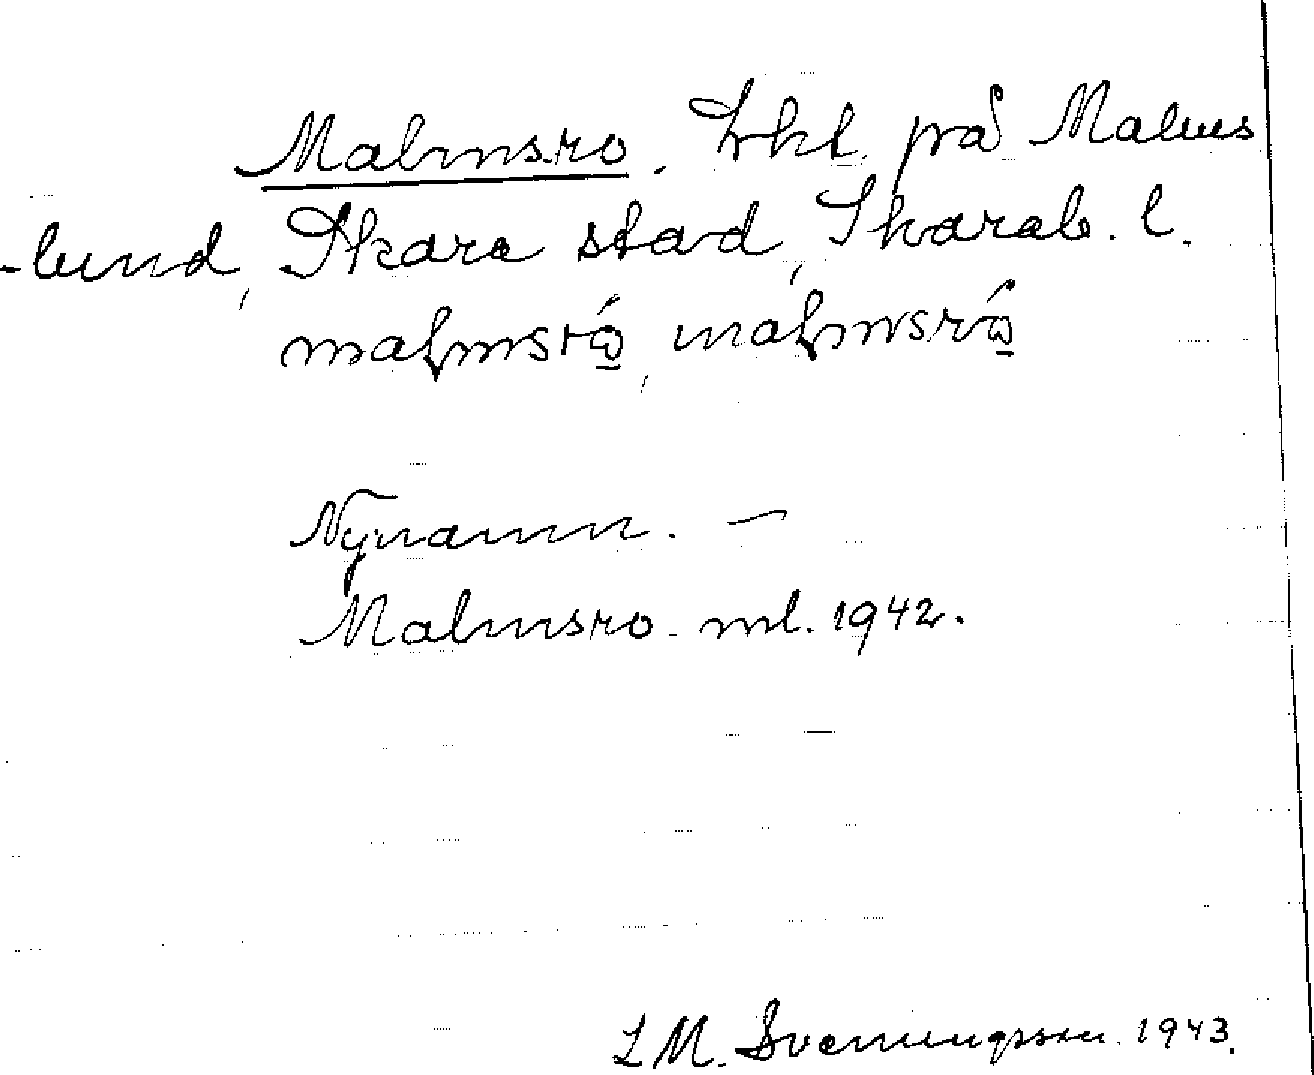 Malmsro. Lht. på Malms
-lund, Skara stad, Skarab. l.
malmsró̲, malmsró̲
Nynamn. –
Malmsro. ml. 1942.
L M. Svenungsson. 1943.